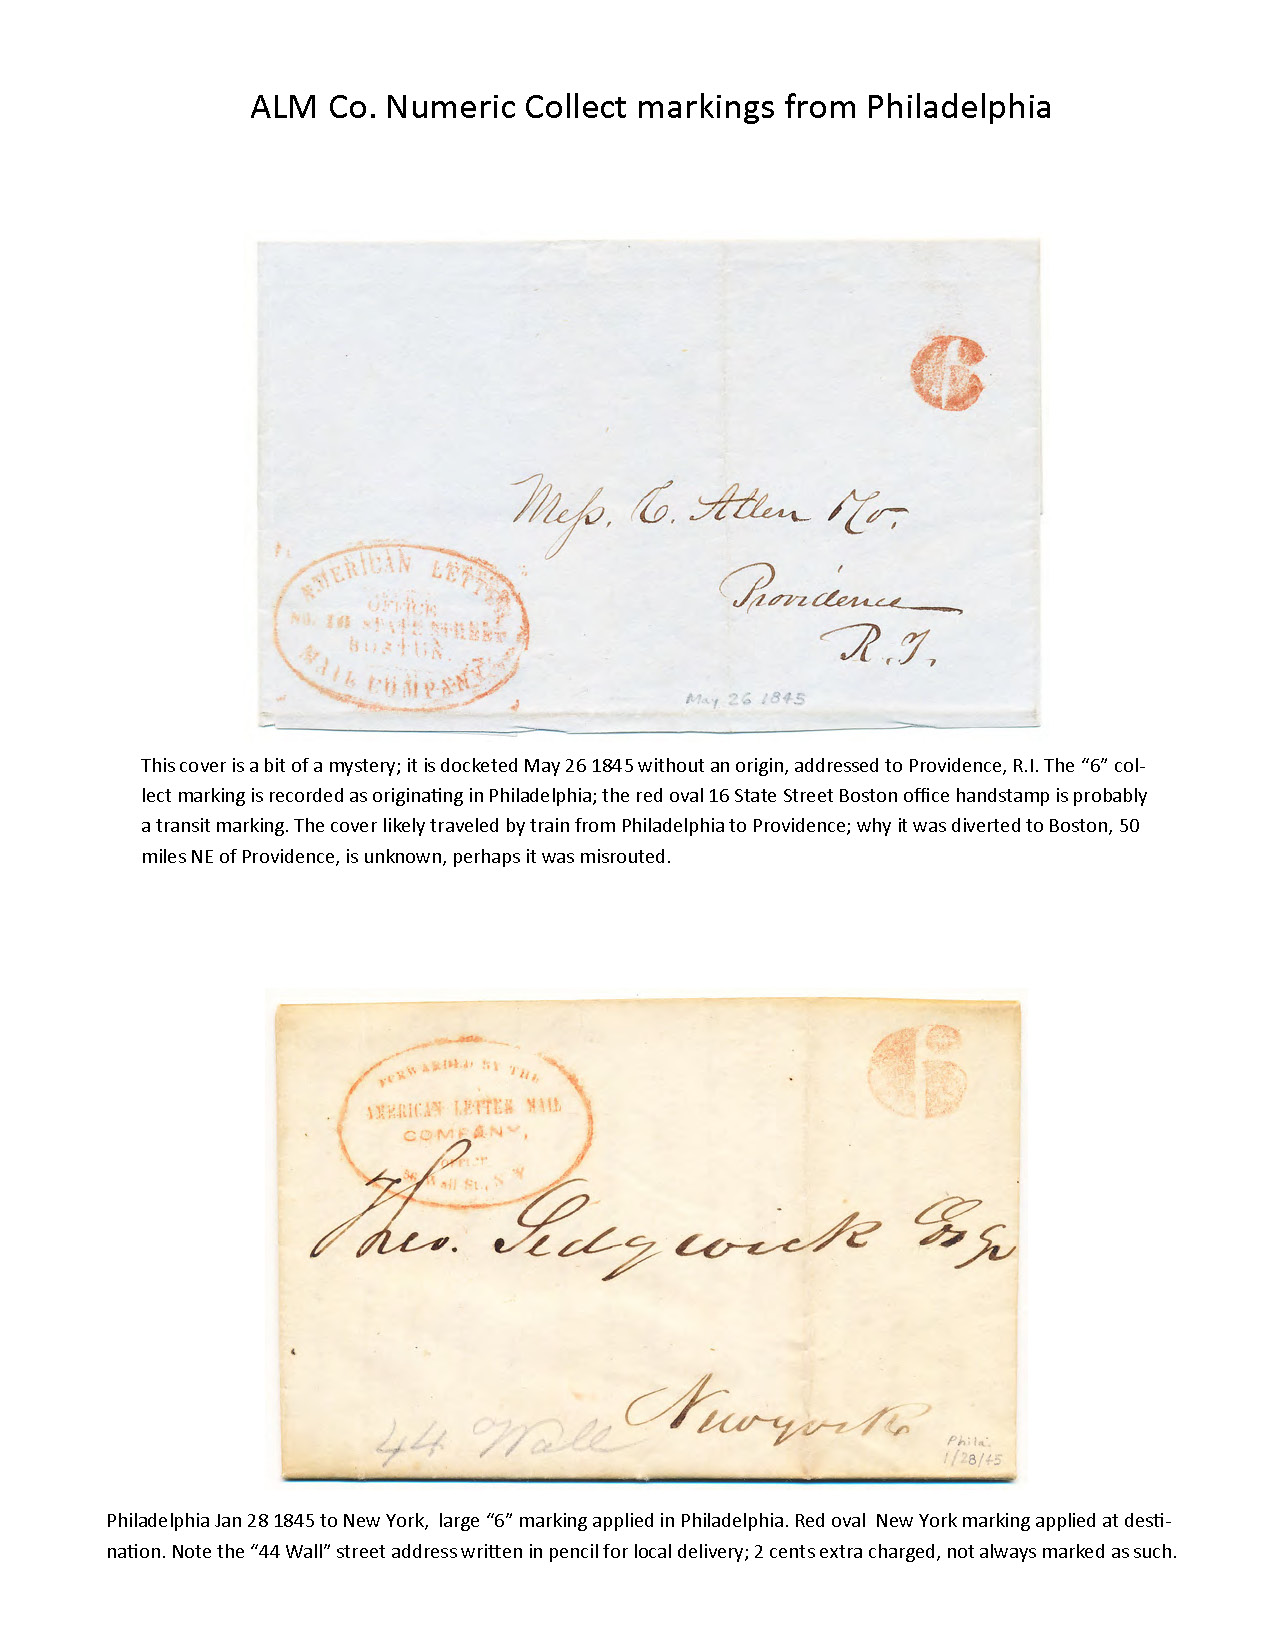 ALM Co. Numeric Collect markings from Philadelphia
6
Mess. C. Allen & Co.
Providence
R.I.
AMERICAN LETTER
OFFICE
No. 16 STATE STREET
BOSTON.
MAIL COMPANY
May 26 1845
This cover is a bit of a mystery; it is docketed May 26 1845 without an origin, addressed to Providence, R.I. The “6” col-
lect marking is recorded as originating in Philadelphia; the red oval 16 State Street Boston office handstamp is probably
a transit marking. The cover likely traveled by train from Philadelphia to Providence; why it was diverted to Boston, 50
miles NE of Providence, is unknown, perhaps it was misrouted.
6
FORWARDED BY THE
AMERICAN LETTER MAIL
COMPANY,
OFFICE
Wall St., N.Y
Theo. Sedgwick Esqr
New york
44 Wall
Phila.
1/28/45
Philadelphia Jan 28 1845 to New York, large “6” marking applied in Philadelphia. Red oval New York marking applied at desti-
nation. Note the “44 Wall” street address written in pencil for local delivery; 2 cents extra charged, not always marked as such.